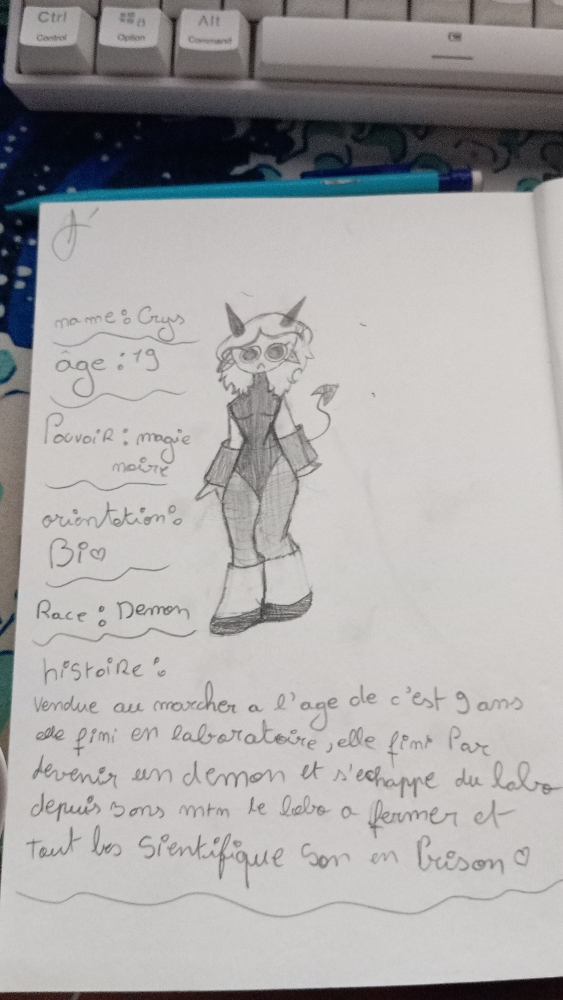 Ctrl
Control
Option
Alt
Command
name : Crys
âge : 19
Pouvoir : magie
noire
orientation :
Bi♡
Race : Demon
histoire :
Vendue au marcher a l'age de c'est 9 ans
elle fini en laboratoire, elle fini Par
devenir un demon et s'echappe du labo
depuis sons mtn le labo a fermer et
tout les Sientifique Son en Prison ♡